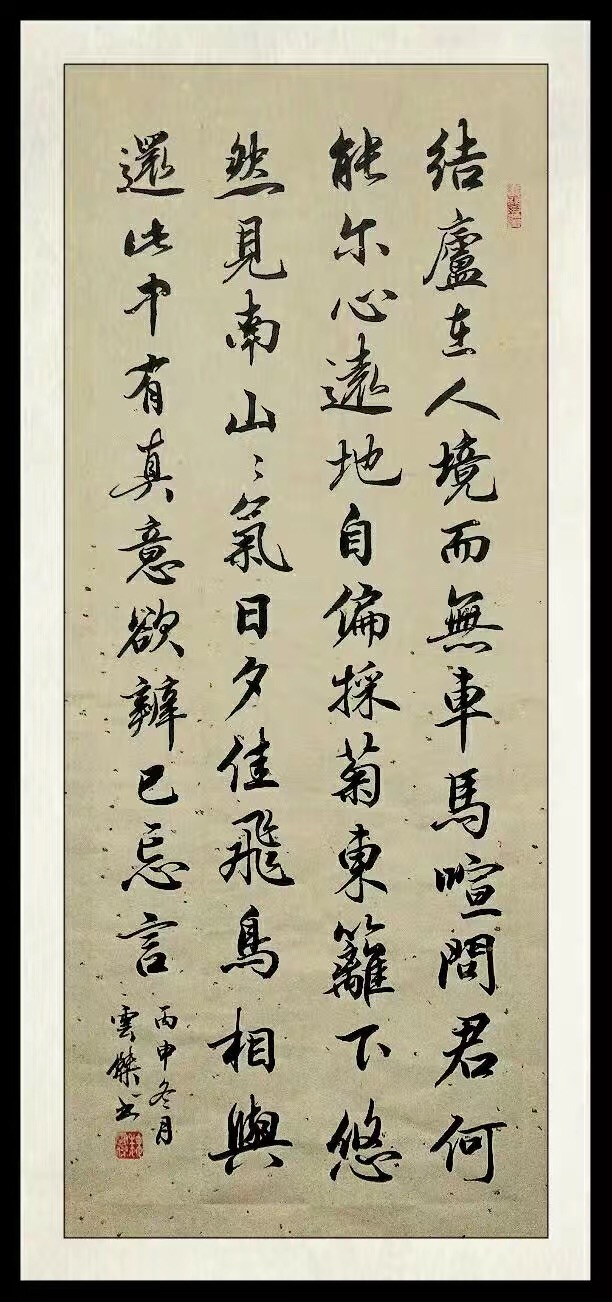 結廬在人境而無車馬喧問君何
能尔心遠地自偏採菊東籬下悠
然見南山〻氣日夕佳飛鳥相與
還此中有真意欲辨已忘言
丙申冬月
雲书